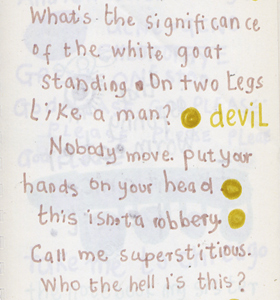 What's the significance
of the white goat
standing on two legs
Like a man? deviL
Nobody move. put your
hands on your head.
this isn't a robbery.
Call me superstitious.
Who the hell is this?